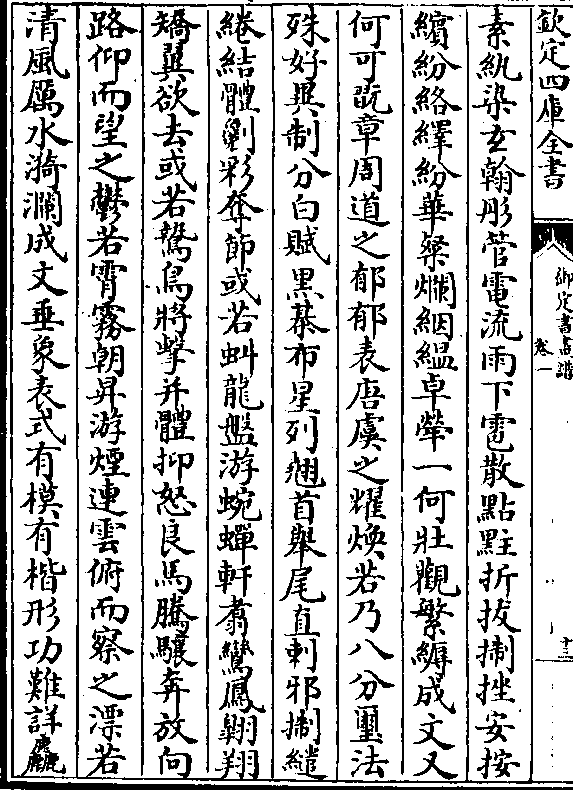 欽定四庫全書
御定書畫譜
卷一
十三
素紈染玄翰彤管電流雨下雹散點䵻折拔掣挫安按
繽紛絡繹紛華粲爛絪縕卓犖一何壯觀繁縟成文又
何可翫章周道之郁郁表唐虞之耀煥若乃八分璽法
殊好異制分白賦黑棊布星列翹首舉尾直刺邪掣繾
綣結體劋彩奪節或若虯龍盤游蜿蟬軒翥鸞鳳翺翔
矯翼欲去或若鷙鳥將擊并體抑怒良馬騰驤奔放向
路仰而望之鬱若霄霧朝昇游煙連雲俯而察之漂若
清風厲水漪瀾成文垂象表式有模有楷形功難詳